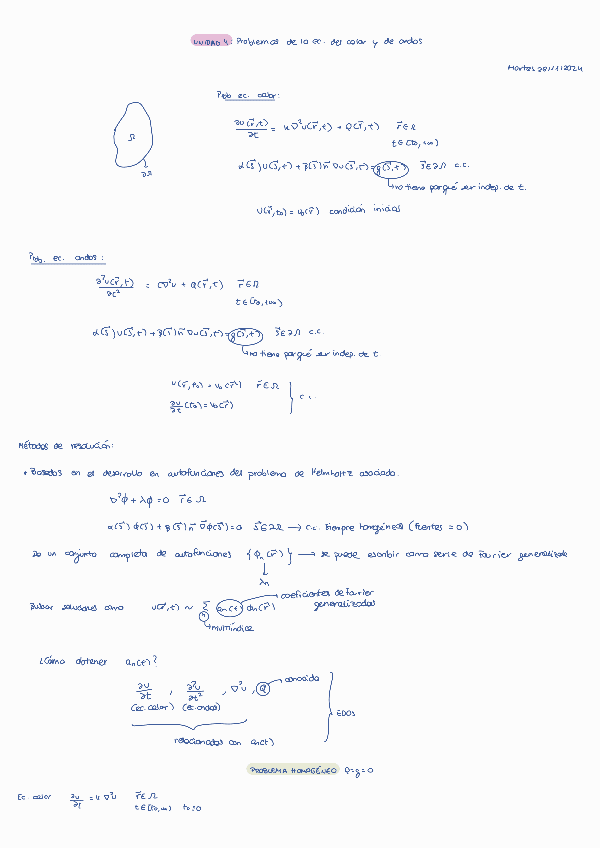 UNIDAD 4: Problemas de la ec. del calor y de ondas
Martes 28/11/2024
Prob. ec. calor:
∂u(r⃗,t)/∂t = k∇²u(r⃗,t) + Q(r⃗,t) r⃗∈Ω
t∈(t₀,+∞)
Ω
∂Ω
α(s⃗)u(s⃗,t) + β(s⃗)n⃗ ∇u(s⃗,t) = g(s⃗,t) s⃗∈∂Ω c.c.
no tiene porqué ser indep. de t.
u(r⃗,t₀) = u₀(r⃗) condición inicial
Prob. ec. ondas:
∂²u(r⃗,t)/∂t² = c∇²u + Q(r⃗,t) r⃗∈Ω
t∈(t₀,+∞)
α(s⃗)u(s⃗,t) + β(s⃗)n⃗ ∇u(s⃗,t) = g(s⃗,t) s⃗∈∂Ω c.c.
no tiene porqué ser indep. de t
u(r⃗,t₀) = u₀(r⃗) r⃗∈Ω
∂u/∂t (t₀) = v₀(r⃗)
c.c.
Métodos de resolución:
• Basados en el desarrollo en autofunciones del problema de Helmholtz asociado.
∇²ϕ + λϕ = 0 r⃗∈Ω
α(s⃗)ϕ(s⃗) + β(s⃗)n⃗ ∇⃗ϕ(s⃗) = 0 s⃗∈∂Ω → c.c. siempre homogéneas (fuentes = 0)
Da un conjunto completo de autofunciones {ϕₙ(r⃗)} → se puede escribir como serie de Fourier generalizada
λₙ
Buscar soluciones como u(r⃗,t) ~ Σₙ aₙ(t) ϕₙ(r⃗)
coeficientes de Fourier
generalizados
multíndice
¿Cómo obtener aₙ(t)?
∂u/∂t , ∂²u/∂t² , ∇²u , Q conocida
(ec. calor) (ec. ondas)
EDOs
relacionados con aₙ(t)
PROBLEMA HOMOGÉNEO Q=g=0
Ec. calor ∂u/∂t = k∇²u r⃗∈Ω
t∈(t₀,∞) t₀=0